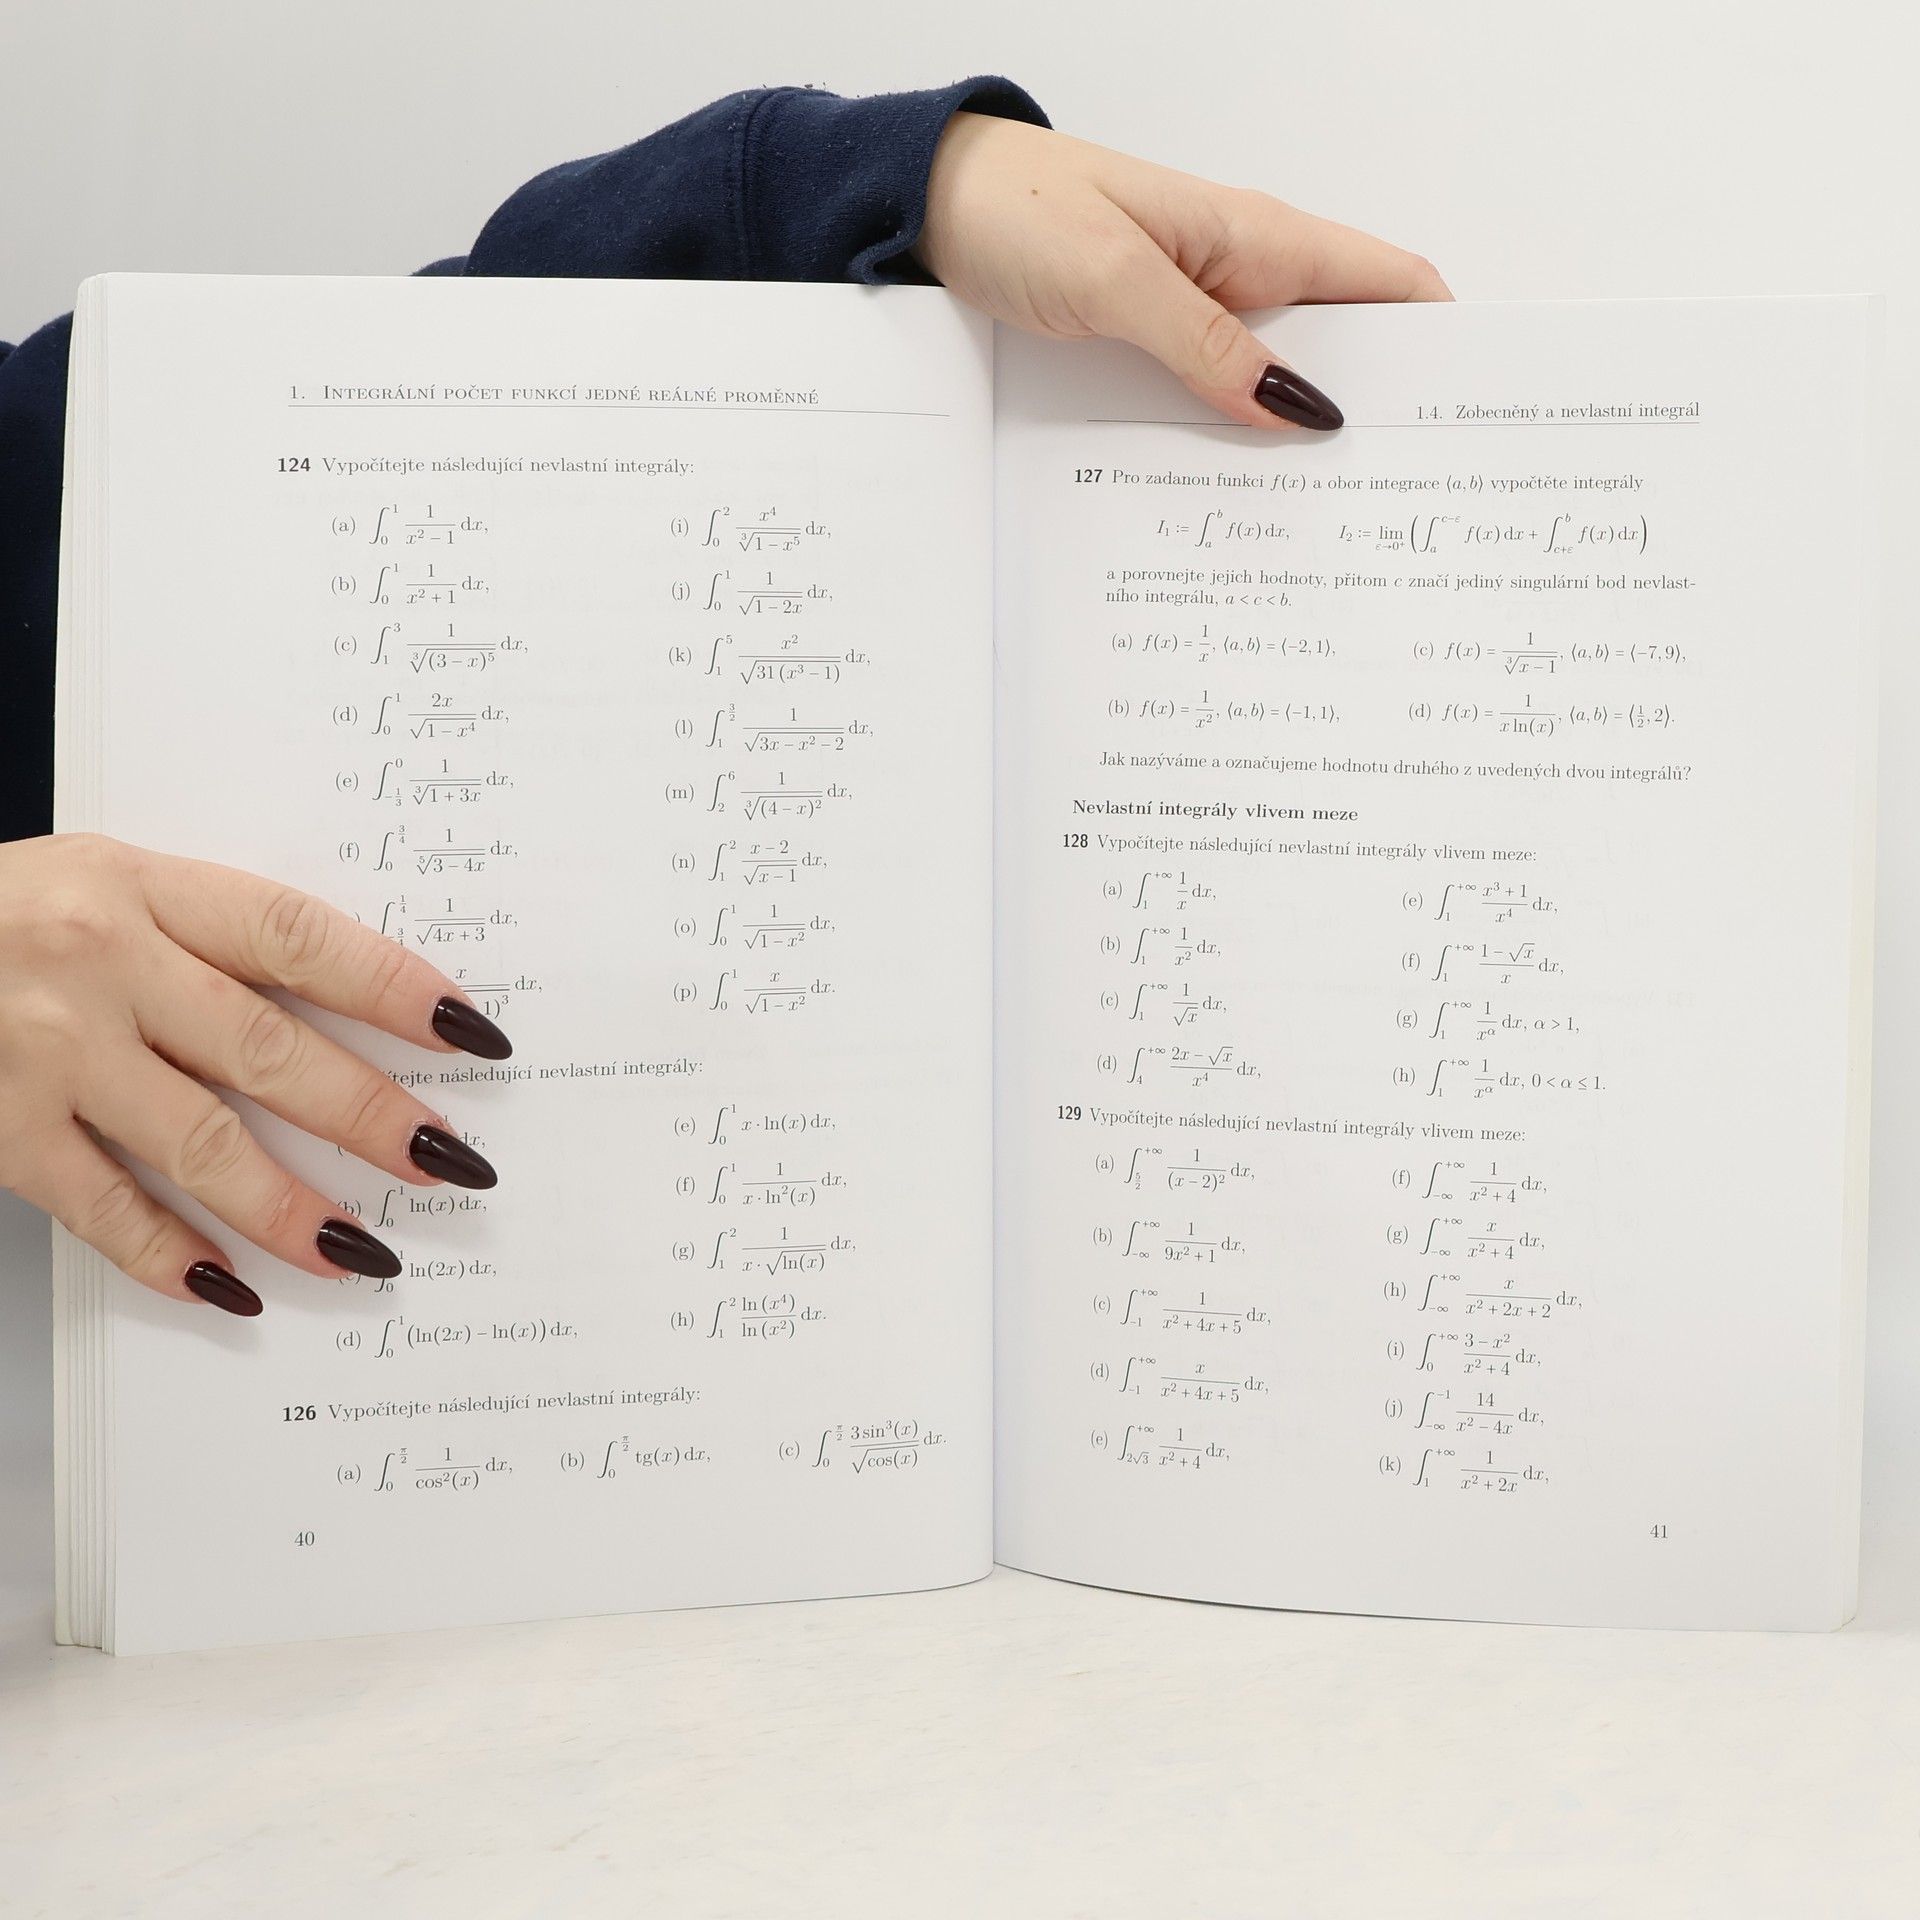 1. INTEGRÁLNÍ POČET FUNKCÍ JEDNÉ REÁLNÉ PROMĚNNÉ
124 Vypočítejte následující nevlastní integrály:
(a) ∫₀¹ 1/(x² − 1) dx,
(b) ∫₀¹ 1/(x² + 1) dx,
(c) ∫₁³ 1/∛((3 − x)⁵) dx,
(d) ∫₀¹ 2x/√(1 − x⁴) dx,
(e) ∫_{−1/3}^{0} 1/∛(1 + 3x) dx,
(f) ∫_{0}^{3/4} 1/⁵√(3 − 4x) dx,
∫_{−3/4}^{1/4} 1/√(4x + 3) dx,
x 1)³ dx,
(i) ∫₀² x⁴/∛(1 − x⁵) dx,
(j) ∫₀¹ 1/√(1 − 2x) dx,
(k) ∫₁⁵ x²/√(31 (x³ − 1)) dx,
(l) ∫_{1}^{3/2} 1/√(3x − x² − 2) dx,
(m) ∫₂⁶ 1/∛((4 − x)²) dx,
(n) ∫₁² (x − 2)/√(x − 1) dx,
(o) ∫₀¹ 1/√(1 − x²) dx,
(p) ∫₀¹ x/√(1 − x²) dx.
následující nevlastní integrály:
dx,
(b) ∫₀¹ ln(x) dx,
∫₀¹ ln(2x) dx,
(d) ∫₀¹ (ln(2x) − ln(x)) dx,
(e) ∫₀¹ x · ln(x) dx,
(f) ∫₀¹ 1/(x · ln²(x)) dx,
(g) ∫₁² 1/(x · √ln(x)) dx,
(h) ∫₁² ln (x⁴)/ln (x²) dx.
126 Vypočítejte následující nevlastní integrály:
(a) ∫_{0}^{π/2} 1/cos²(x) dx, (b) ∫_{0}^{π/2} tg(x) dx, (c) ∫_{0}^{π/2} 3 sin³(x)/√cos(x) dx.
40
1.4. Zobecněný a nevlastní integrál
127 Pro zadanou funkci f(x) a obor integrace ⟨a, b⟩ vypočtěte integrály
I₁ := ∫_{a}^{b} f(x) dx, I₂ := lim_{ε→0⁺} (∫_{a}^{c−ε} f(x) dx + ∫_{c+ε}^{b} f(x) dx)
a porovnejte jejich hodnoty, přitom c značí jediný singulární bod nevlast-
ního integrálu, a < c < b.
(a) f(x) = 1/x, ⟨a, b⟩ = ⟨−2, 1⟩, (c) f(x) = 1/∛(x − 1), ⟨a, b⟩ = ⟨−7, 9⟩,
(b) f(x) = 1/x², ⟨a, b⟩ = ⟨−1, 1⟩, (d) f(x) = 1/(x ln(x)), ⟨a, b⟩ = ⟨1/2, 2⟩.
Jak nazýváme a označujeme hodnotu druhého z uvedených dvou integrálů?
Nevlastní integrály vlivem meze
128 Vypočítejte následující nevlastní integrály vlivem meze:
(a) ∫_{1}^{+∞} 1/x dx,
(b) ∫_{1}^{+∞} 1/x² dx,
(c) ∫_{1}^{+∞} 1/√x dx,
(d) ∫_{4}^{+∞} (2x − √x)/x⁴ dx,
(e) ∫_{1}^{+∞} (x³ + 1)/x⁴ dx,
(f) ∫_{1}^{+∞} (1 − √x)/x dx,
(g) ∫_{1}^{+∞} 1/x^α dx, α > 1,
(h) ∫_{1}^{+∞} 1/x^α dx, 0 < α ≤ 1.
129 Vypočítejte následující nevlastní integrály vlivem meze:
(a) ∫_{5/2}^{+∞} 1/(x − 2)² dx,
(b) ∫_{−∞}^{+∞} 1/(9x² + 1) dx,
(c) ∫_{−1}^{+∞} 1/(x² + 4x + 5) dx,
(d) ∫_{−1}^{+∞} x/(x² + 4x + 5) dx,
(e) ∫_{2√3}^{+∞} 1/(x² + 4) dx,
(f) ∫_{−∞}^{+∞} 1/(x² + 4) dx,
(g) ∫_{−∞}^{+∞} x/(x² + 4) dx,
(h) ∫_{−∞}^{+∞} x/(x² + 2x + 2) dx,
(i) ∫_{0}^{+∞} (3 − x²)/(x² + 4) dx,
(j) ∫_{−∞}^{−1} 14/(x² − 4x) dx,
(k) ∫_{1}^{+∞} 1/(x² + 2x) dx,
41